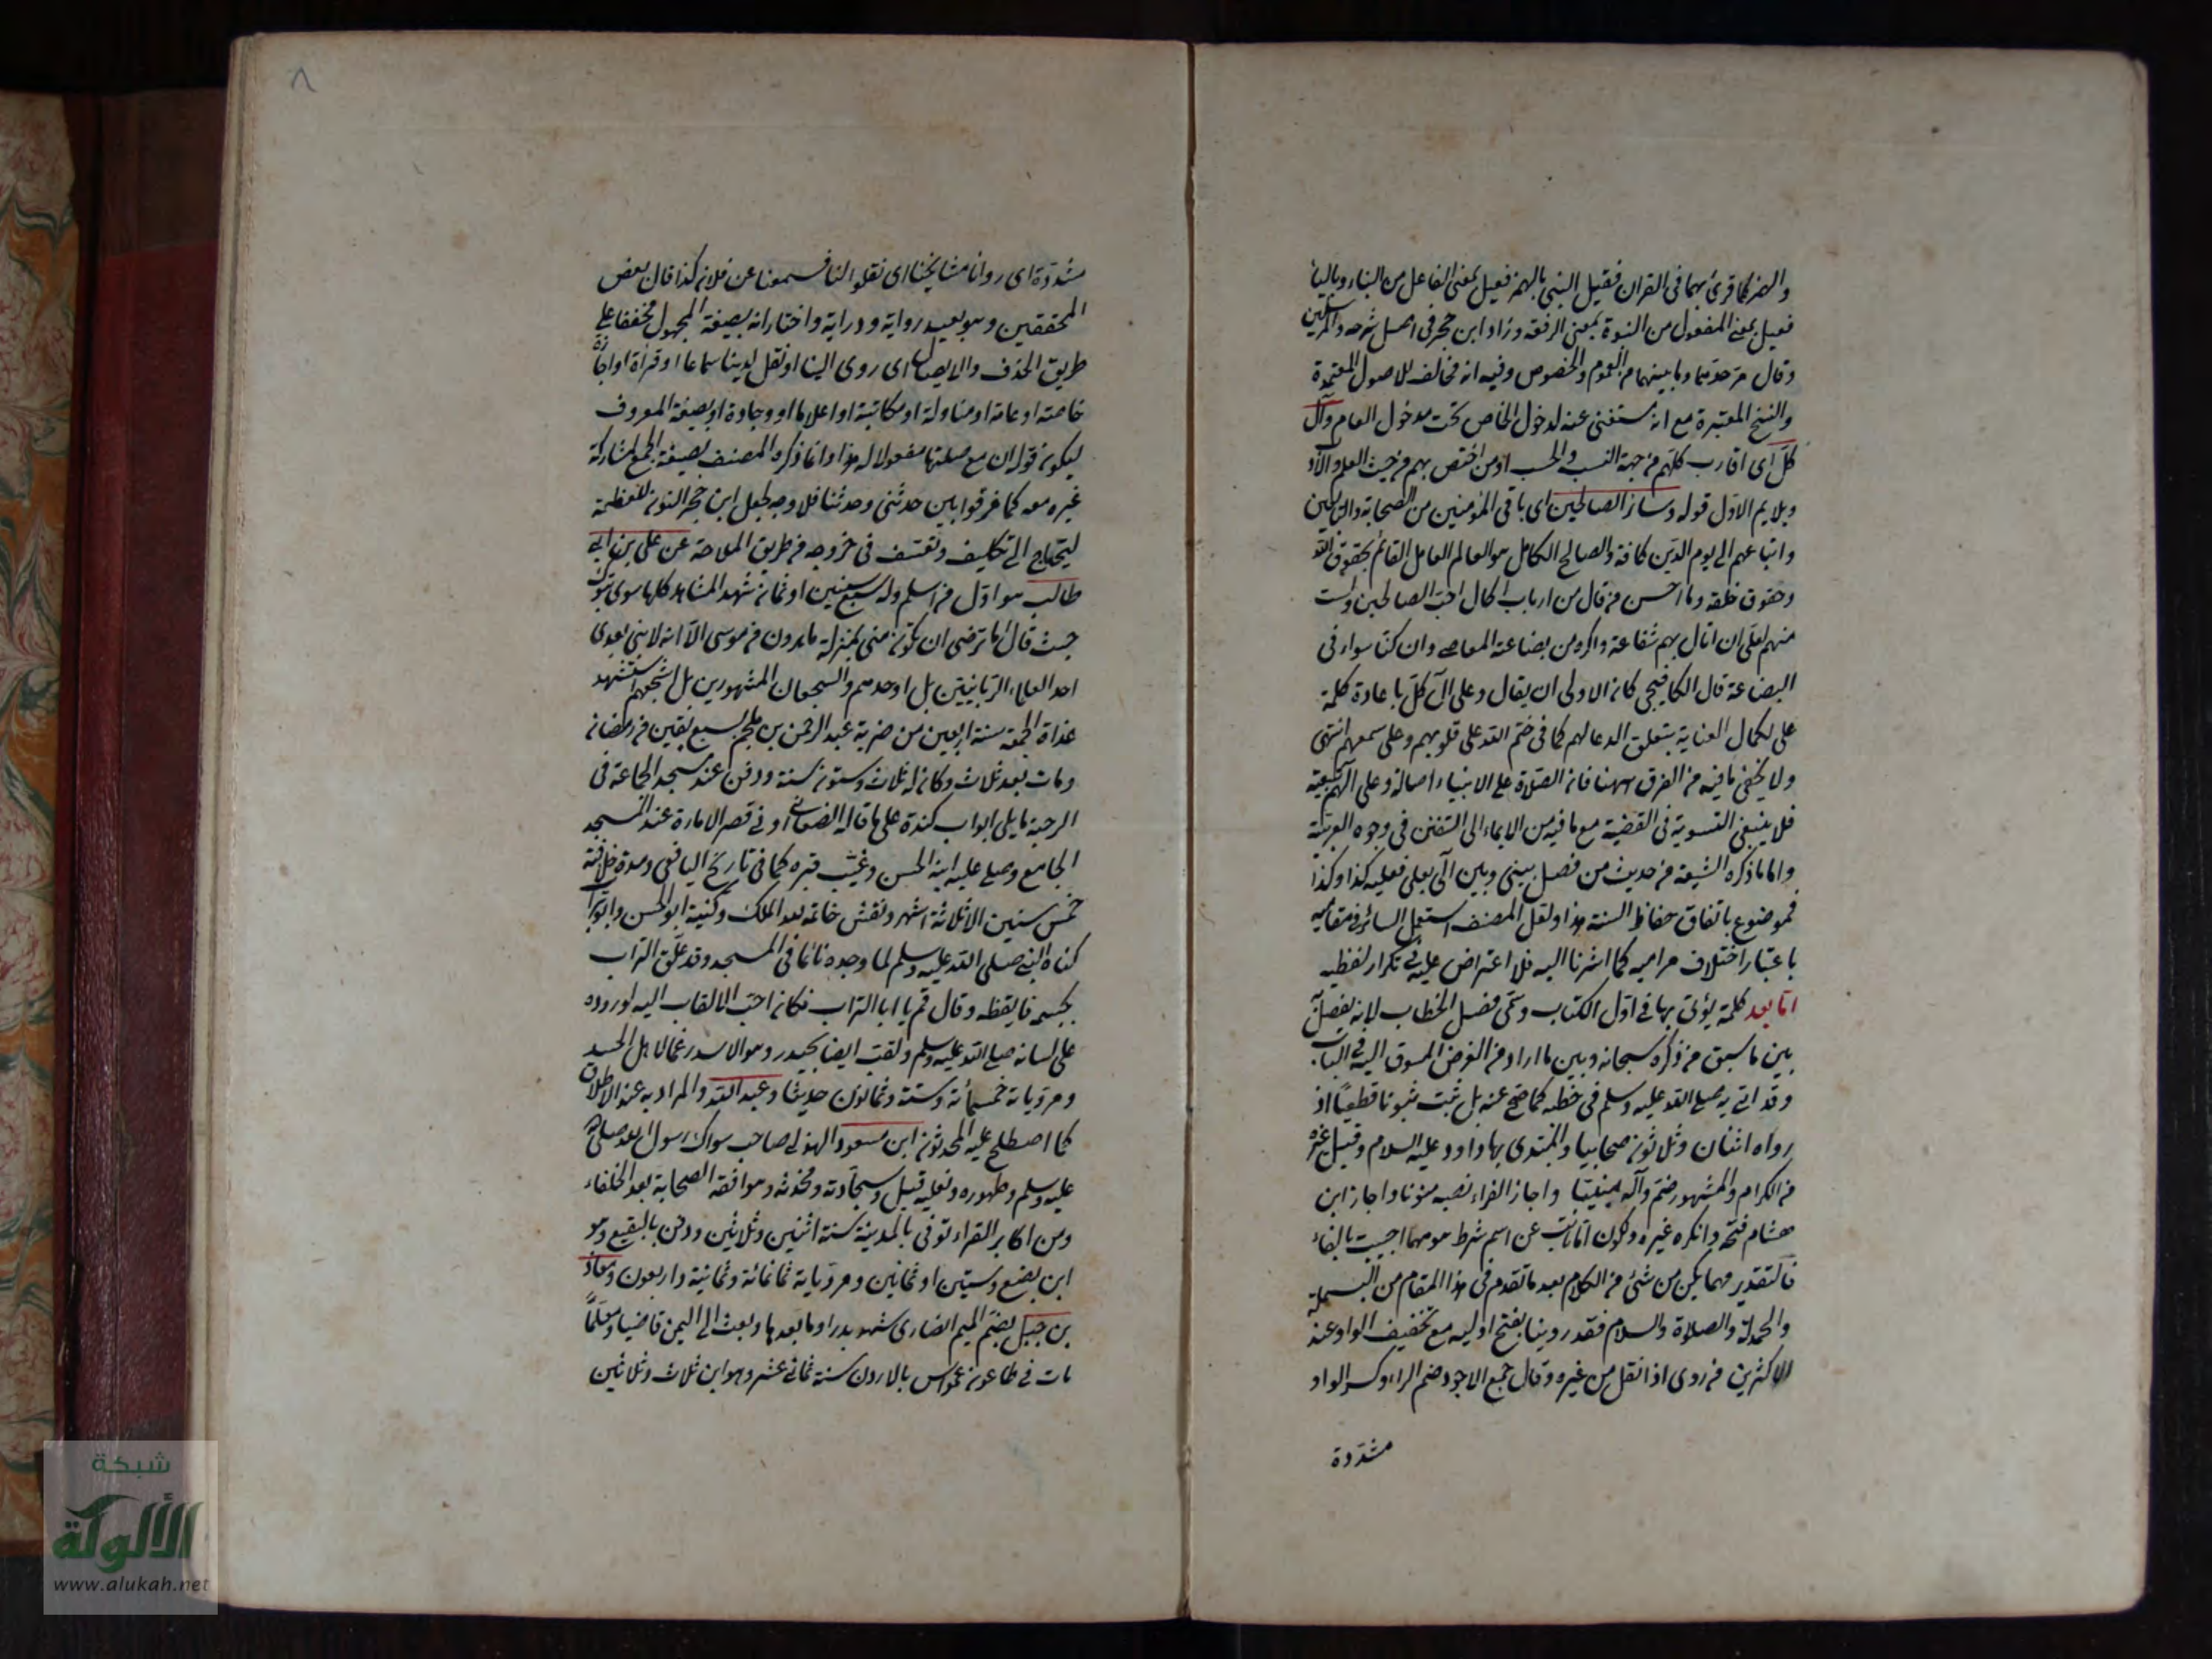 والهمز كما قرئ بهما في القران فقيل النبي بالهمز فعيل بمعنى الفاعل من النباء وبالياء
فعيل بمعنى المفعول من النبوة بمعنى الرفعة وزاد ابن حجر في اصل شرحه والمرسلين
وقال مر حدهما وما بينهما من العموم والخصوص وفيه انه مخالف للاصول المعتمدة
والنسخ المعتبرة مع انه مستغنى عنه لدخول الخاص تحت مدخول العام وآل
كل اى اقارب كلهم من جهة النسب والحسب او من اختص بهم من حيث العلم والادب
ويلايم الاول قوله وسائر الصالحين اى باقى المؤمنين من الصحابة والتابعين
واتباعهم الى يوم الدين كافة والصالح الكامل هو العالم العامل القائم بحقوق الله
وحقوق خلقه وما احسن من قال من ارباب الكمال احب الصالحين ولست
منهم لعلى ان انال بهم شفاعة واكره من بضاعته المعاصى وان كنا سواء في
البضاعة قال الكافيجى كان الاولى ان يقال وعلى آل كل باعادة كلمة
على لكمال العناية بتعلق الدعا لهم كما فى ختم الله على قلوبهم وعلى سمعهم انتهى
ولا يخفى ما فيه من الفرق ههنا فان الصلاة على الانبياء اصالة وعلى آلهم تبعية
فلا ينبغى التسوية فى القضية مع ما فيه من الايماء الى التفنن فى وجوه العربية
واما ما ذكره الشيعة من حديث من فصل بينى وبين آلى بعلى فعليه كذا وكذا
فموضوع باتفاق حفاظ السنة هذا ولعل المصنف استعمل السائر فى مقاميه
باعتبار اختلاف مراميه كما اشرنا اليه فلا اعتراض عليه فى تكرار لفظيه
اما بعد كلمة يؤتى بها فى اول الكتاب وسمى فصل الخطاب لانه يفصل
بين ما سبق من ذكره سبحانه وبين ما اراد من الغرض المسوق اليه فى الباب
وقد اتى به صلى الله عليه وسلم فى خطبه كما صح عنه بل ثبت ثبوتا قطعيا اذ
رواه اثنان وثلثون صحابيا والمبتدى بها داود عليه السلام وقيل غيره
من الكرام والمشهور ضم داله مبنيا واجاز الفراء نصبه منونا واجاز ابن
هشام فتحه وانكره غيره ولكون اما نائبة عن اسم شرط هو مهما اجيبت بالفاء
فالتقدير مهما يكن من شئ من الكلام بعد ما تقدم فى هذا المقام من البسملة
والحمدلة والصلاة والسلام فقد روينا بفتح اوليه مع تخفيف الواو عند
الاكثرين من روى اذا نقل من غيره وقال جمع الاجود ضم الراء وكسر الواو
مشددة
مشددة اى روانا مشايخنا اى نقلوا لنا فسمعنا عن فلان كذا قال بعض
المحققين وهو بعيد رواية ودراية واختار انه بصيغة المجهول مخففا على
طريق الحذف والايصال اى روى الينا او نقل لدينا سماعا او قراة او اجازة
خاصة او عامة او مناولة او مكاتبة او اعلاما او وجادة او بصيغة المعروف
ليكون قوله ان مع صلتها مفعولا له هذا وانما ذكره المصنف بصيغة الجمع لمشاركة
غيره معه كما فرقوا بين حدثنى وحدثنا فلا وجه لجعل ابن حجر النون للعظمة
ليحتاج الى تكليف وتعسف فى خروجه من طريق الملاحة عن على بن ابى
طالب هو اول من اسلم وله سبع سنين او ثمان شهد المشاهد كلها سوى تبوك
حيث قال اما ترضى ان تكون منى بمنزلة هارون من موسى الا انه لا نبى بعدى
احد العلماء الربانيين بل اوحدهم والشجعان المشهورين بل اشجعهم استشهد
غداة الجمعة سنة اربعين من ضربة عبد الرحمن بن ملجم لسبع بقين من رمضان
ومات بعد ثلاث وكان له ثلاث وستون سنة ودفن عند مسجد الجماعة فى
الرحبة مما يلى ابواب كندة على ما قاله الصغانى او فى قصر الامارة عند المسجد
الجامع وصلى عليه ابنه الحسن وغيب قبره كما فى تاريخ اليافعى ومدة خلافته
خمس سنين الا ثلاثة اشهر ونقش خاتمه لله الملك وكنيته ابو الحسن وابو تراب
كناه النبى صلى الله عليه وسلم لما وجده نائما فى المسجد وقد علق التراب
بجسمه فايقظه وقال قم يا ابا التراب فكان احب الالقاب اليه لوروده
على لسانه صلى الله عليه وسلم ولقب ايضا بحيدر وهو الاسد رغما لاهل الحسد
ومروياته خمسمائة وستة وثمانون حديثا وعبد الله والمراد به عند الاطلاق
كما اصطلح عليه المحدثون ابن مسعود الهذلى صاحب سواك رسول الله صلى الله
عليه وسلم وطهوره ونعليه قيل وسجادته ومخدته وهو افقه الصحابة بعد الخلفاء
ومن اكابر القراء توفى بالمدينة سنة اثنين وثلاثين ودفن بالبقيع وهو
ابن بضع وستين او ثمانين ومروياته ثمانمائة وثمانية واربعون ومعاذ
بن جبل بضم الميم انصارى شهد بدرا وما بعدها وبعث الى اليمن قاضيا ومعلما
مات فى طاعون عمواس بالاردن سنة ثمانى عشر وهو ابن ثلاث وثلاثين
شبكة
الألوكة
www.alukah.net